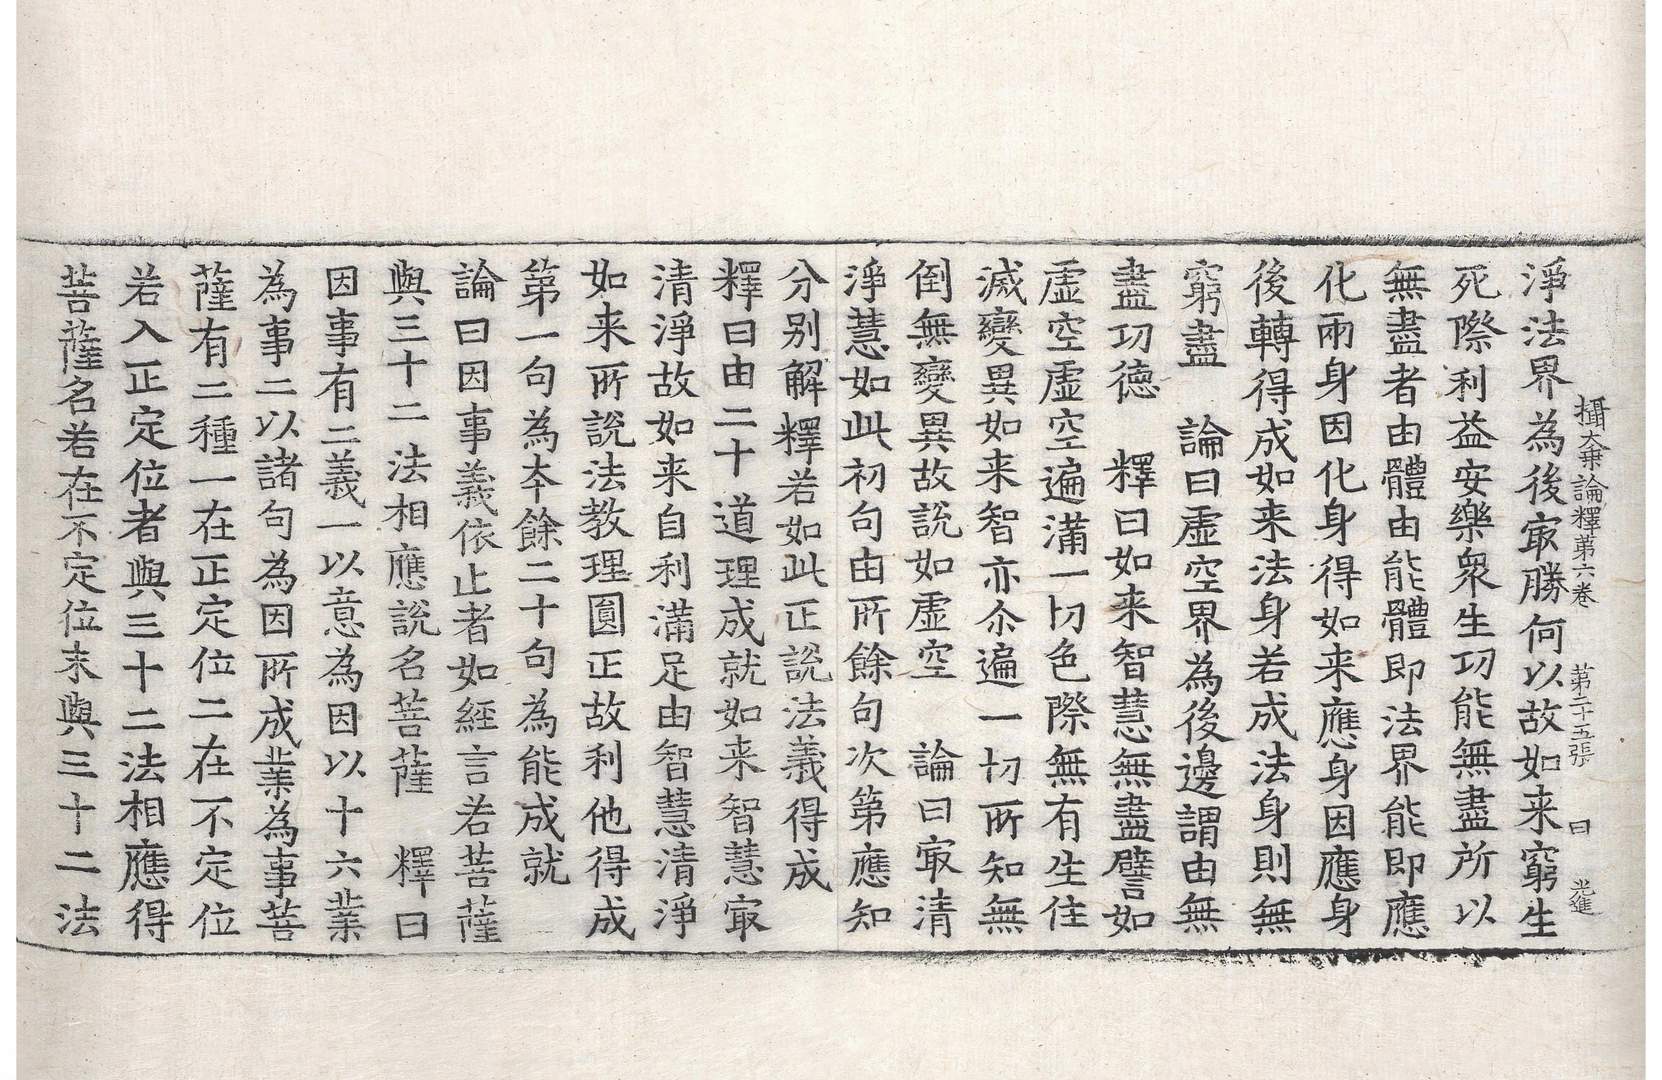 攝大乗論釋第六卷　第二十五張　曰　光進
淨法界為後㝡勝何以故如来窮生
死際利益安樂衆生功能無盡所以
無盡者由體由能體即法界能即應
化兩身因化身得如来應身因應身
後轉得成如来法身若成法身則無
窮盡　論曰虚空界為後邊謂由無
盡功德　釋曰如来智慧無盡譬如
虚空虚空遍滿一切色際無有生住
滅變異如来智亦尒遍一切所知無
倒無變異故説如虚空　論曰㝡清
淨慧如此初句由所餘句次第應知
分别解釋若如此正説法義得成
釋曰由二十道理成就如来智慧㝡
清淨故如来自利滿足由智慧清淨
如来所説法教理圓正故利他得成
第一句為本餘二十句為能成就
論曰因事義依止者如經言若菩薩
與三十二法相應説名菩薩　釋曰
因事有二義一以意為因以十六業
為事二以諸句為因所成業為事菩
薩有二種一在正定位二在不定位
若入正定位者與三十二法相應得
菩薩名若在不定位未與三十二法